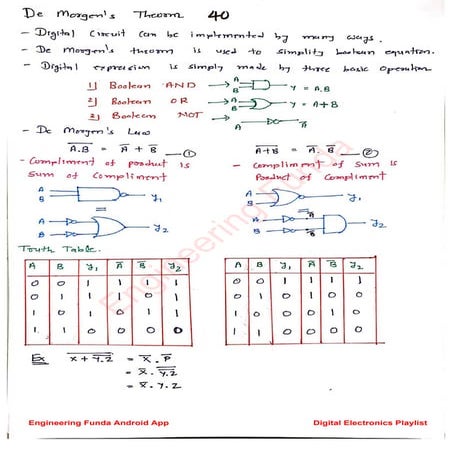 De Morgen's Theorm 40
- Digital Circuit can be implemented by many ways.
- De Morgen's theorm is used to simplify boolean equation.
- Digital expression is simply made by three basic operation
1) Boolean AND → A B Y = A.B
2) Boolean OR → A B Y = A+B
3) Boolean NOT → A Ā
- De Morgen's Law
\overline{A.B} = \overline{A} + \overline{B} — ①
- Compliment of product is
Sum of Compliment
A B y₁
=
A B y₂
\overline{A+B} = \overline{A} . \overline{B} — ②
- Compliment of sum is
Product of Compliment
A B y₁
A B Ā B̄ y₂
Truth Table.
A B y₁ Ā B̄ y₂
0 0 1 1 1 1
0 1 1 1 0 1
1 0 1 0 1 1
1 1 0 0 0 0
A B y₁ Ā B̄ y₂
0 0 1 1 1 1
0 1 0 1 0 0
1 0 0 0 1 0
1 1 0 0 0 0
Ex \overline{x + \overline{y.z}} = \overline{x} . \overline{P}
= \overline{x} . \overline{\overline{y.z}}
= \overline{x} . y . z
Engineering Funda
Engineering Funda Android App
Digital Electronics Playlist